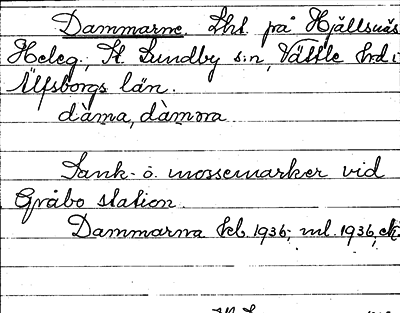 Dammarne. Lht. på Hjällsnäs
Heleg., St. Lundby s:n, Vättle hrd i
Älfsborgs län.
dàma, dàmɔra
Sank- o. mossemarker vid
Gråbo station.
Dammarna kb. 1936; ml. 1936,